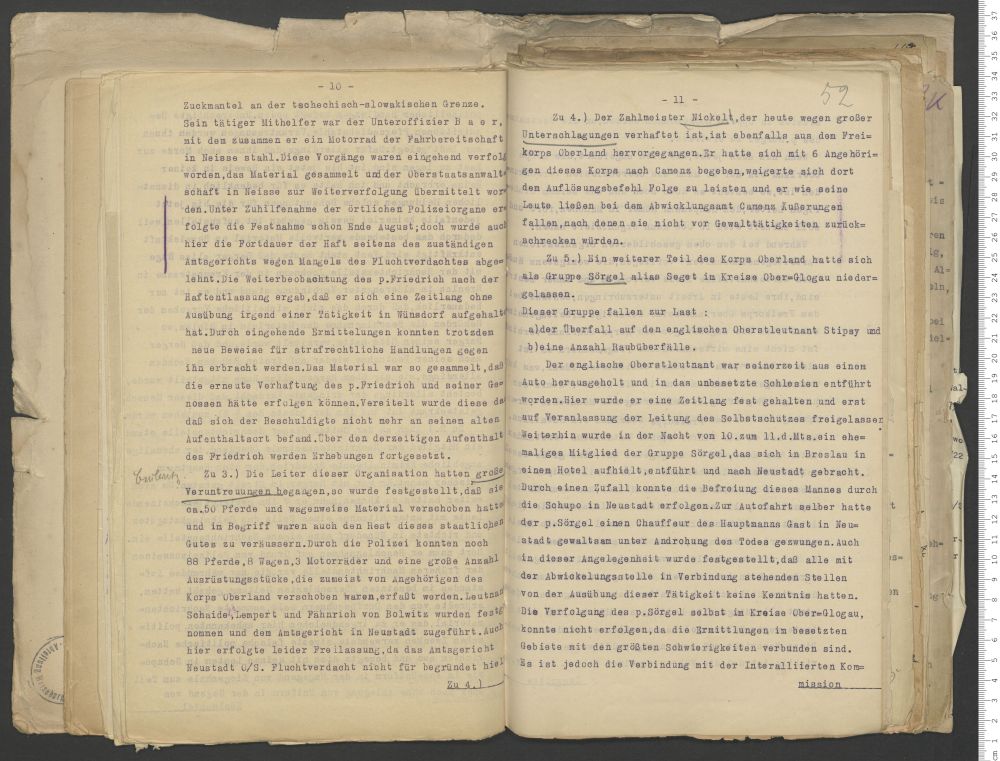 - 10 -
Zuckmantel an der tschechisch-slowakischen Grenze.
Sein tätiger Mithelfer war der Unteroffizier B a e r,
mit dem zusammen er ein Motorrad der Fahrbereitschaft
in Neisse stahl.Diese Vorgänge waren eingehend verfol
worden,das Material gesammelt und der Oberstaatsanwalt
schaft in Neisse zur Weiterverfolgung übermittelt wor
den.Unter Zuhilfenahme der örtlichen Polizeiorgane er
folgte die Festnahme schon Ende August;doch wurde auch
hier die Fortdauer der Haft seitens des zuständigen
Amtsgerichts wegen Mangels des Fluchtverdachtes abge=
lehnt.Die Weiterbeobachtung des p.Friedrich nach der
Haftentlassung ergab,daß er sich eine Zeitlang ohne
Ausübung irgend einer Tätigkeit in Wünsdorf aufgehalt
hat.Durch eingehende Ermittelungen konnten trotzdem
neue Beweise für strafrechtliche Handlungen gegen
ihn erbracht werden.Das Material war so gesammelt,daß
die erneute Verhaftung des p.Friedrich und seiner Ge=
nossen hätte erfolgen können.Vereitelt wurde diese da
daß sich der Beschuldigte nicht mehr an seinem alten
Aufenthaltsort befand.Über den derzeitigen Aufenthalt
des Friedrich werden Erhebungen fortgesetzt.
Zu 3.) Die Leiter dieser Organisation hatten große
Veruntreuungen begangen,so wurde festgestellt,daß sie
ca.50 Pferde und wagenweise Material verschoben hatte
und in Begriff waren auch den Rest dieses staatlichen
Gutes zu veräussern.Durch die Polizei konnten noch
88 Pferde,8 Wagen,3 Motorräder und eine große Anzahl
Ausrüstungsstücke,die zumeist von Angehörigen des
Korps Oberland verschoben waren,erfaßt werden.Leutna
Schaide,Lempert und Fähnrich von Bolwitz wurden festg
nommen und dem Amtsgericht in Neustadt zugeführt.Auch
hier erfolgte leider Freilassung,da das Amtsgericht
Neustadt O/S. Fluchtverdacht nicht für begründet hiel
Zu 4.)
52
- 11 -
Zu 4.) Der Zahlmeister Nickelt,der heute wegen großer
Unterschlagungen verhaftet ist,ist ebenfalls aus dem Frei=
korps Oberland hervorgegangen.Er hatte sich mit 6 Angehöri=
gen dieses Korps nach Camenz begeben,weigerte sich dort
dem Auflösungsbefehl Folge zu leisten und er wie seine
Leute ließen bei dem Abwicklungsamt Camenz Äußerungen
fallen,nach denen sie nicht vor Gewalttätigkeiten zurück=
schrecken würden.
Zu 5.) Ein weiterer Teil des Korps Oberland hatte sich
als Gruppe Sörgel alias Seget im Kreise Ober=Glogau nieder=
gelassen.
Dieser Gruppe fallen zur Last :
a)der Überfall auf den englischen Oberstleutnant Stipsy und
b)eine Anzahl Raubüberfälle.
Der englische Oberstleutnant war seinerzeit aus einem
Auto herausgeholt und in das unbesetzte Schlesien entführt
worden.Hier wurde er eine Zeitlang fest gehalten und erst
auf Veranlassung der Leitung des Selbstschutzes freigelassen
Weiterhin wurde in der Nacht von 10.zum 11.d.Mts.ein ehe=
maliges Mitglied der Gruppe Sörgel,das sich in Breslau in
einem Hotel aufhielt,entführt und nach Neustadt gebracht.
Durch einen Zufall konnte die Befreiung dieses Mannes durch
die Schupo in Neustadt erfolgen.Zur Autofahrt selber hatte
der p.Sörgel einen Chauffeur des Hauptmanns Gast in Neu=
stadt gewaltsam unter Androhung des Todes gezwungen.Auch
in dieser Angelegenheit wurde festgestellt,daß alle mit
der Abwickelungsstelle in Verbindung stehenden Stellen
von der Ausübung dieser Tätigkeit keine Kenntnis hatten.
Die Verfolgung des p.Sörgel selbst im Kreise Ober=Glogau,
konnte nicht erfolgen,da die Ermittlungen im besetzten
Gebiete mit den größten Schwierigkeiten verbunden sind.
Es ist jedoch die Verbindung mit der Interalliierten Kom=
mission